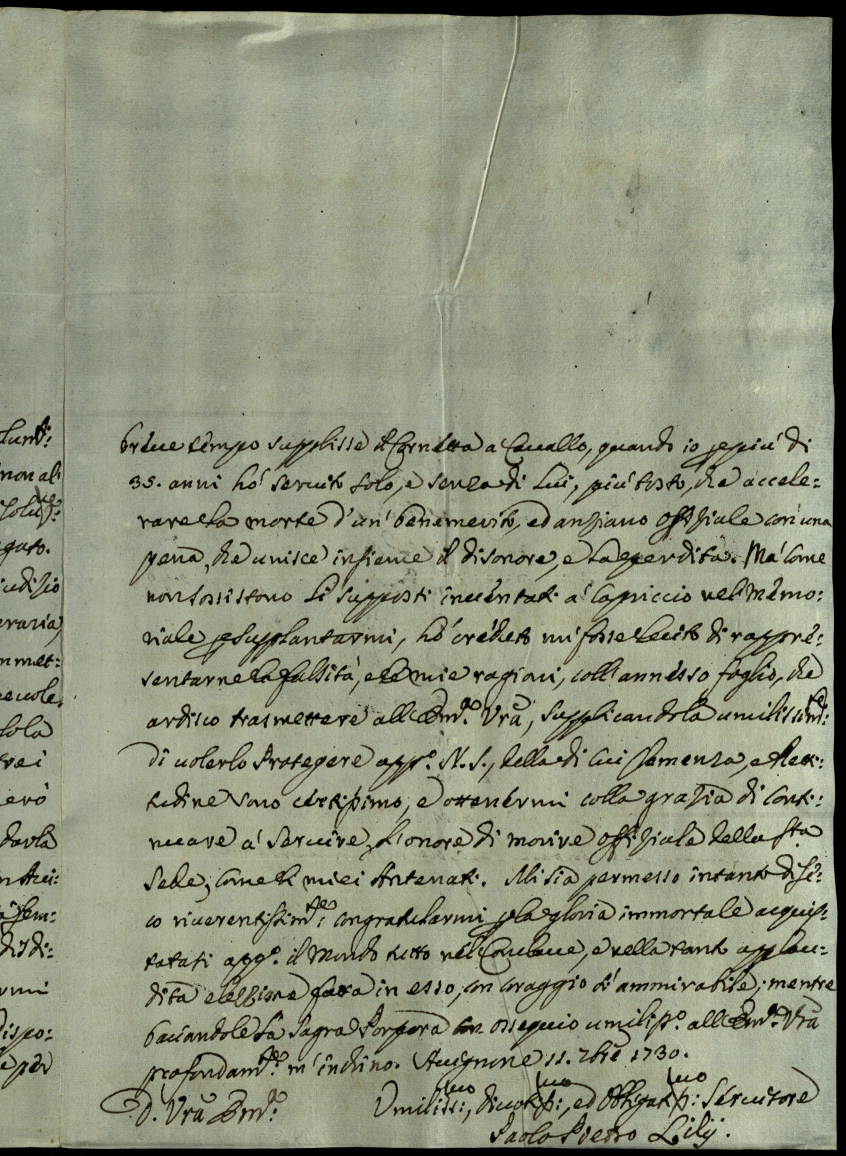 breue tempo supplisse il Cornetta a Cauallo, quando io p più di
35. anni hò seruito solo, e senza di Lui, più tosto, che accele=
rare la morte d'un' benemerito, ed anziano Offiziale con una
pena, che unisce insieme il disonore, e la perdita. Mà come
non sossistono li supposti inuentati à capriccio nel memo=
riale p supplantarmi, hò creduto mi fosse lecito di rappre=
sentarne la falsità, e le mie ragioni, coll'annesso foglio, che
ardisco trasmettere all'Emza Vra, supplicandola umilissimte
di uolerlo Protegere appo N. S., della di cui Clemenza, e Retti=
tudine sono certissimo, e ottenermi colla grazia di conti=
nuare à seruire, l'onore di morire offiziale della Sta
Sede, come li miei Antenati. Mi sia permesso intanto di
riuerentissimte congratularmi p la gloria immortale acquis=
tatasi appo il Mondo tutto nel Conclaue, e nella tanto applau=
dita elezzione fatta in esso, con coraggio sì ammirabile; mentre
baciandole la Sagra Porpora con ossequio umilissº all'Emza Vra
profondamte m'inchino. Auignone 11. 7bre 1730.
D. Vra Emza
Umilissmo:, diuotissmo:, ed Obbligatissmo: Seruitore
Paolo Pietro Lilij.
lunt:
non ab
gato.
iudizio
eraria,
mmet:
sola
trei
erò
darla
sem=
rmi
dispo=
e per